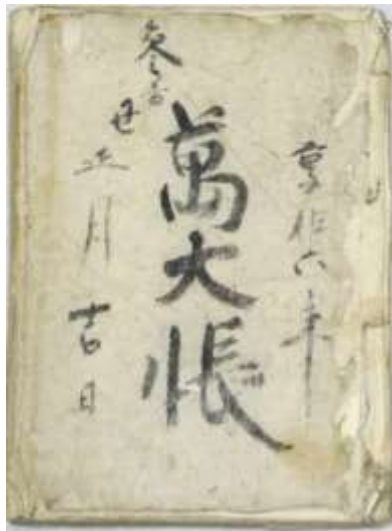 享保六年
萬大帳
丑正月吉日